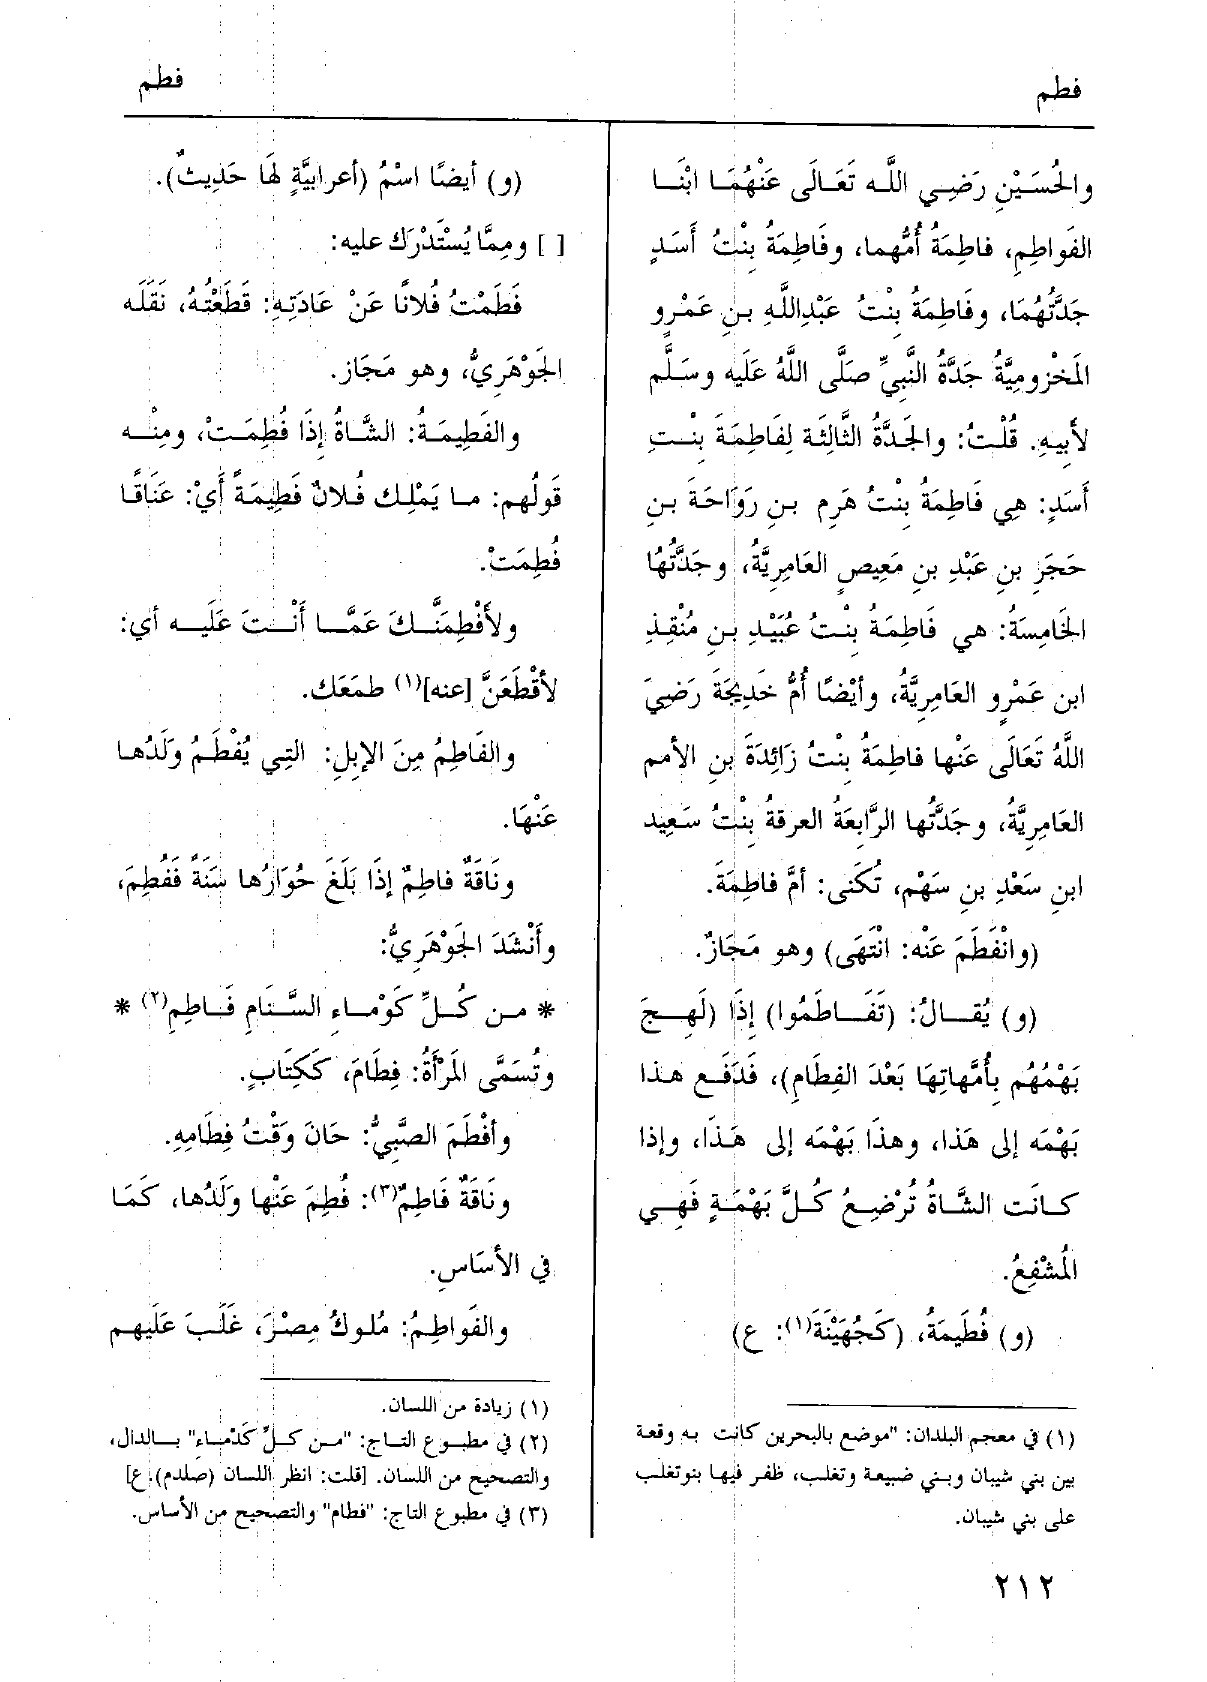 فطم
فطم
والحُسَيْنِ رَضِي اللَّه تَعَالَى عَنْهُمَا ابْنَا
الفَواطِمِ، فاطِمَةُ أُمُّهما، وفَاطِمَةُ بِنْتُ أَسَدٍ
جَدَّتُهُمَا، وفَاطِمَةُ بِنْتُ عَبْدِاللَّهِ بنِ عَمْرٍو
المَخْزومِيَّةُ جَدَّةُ النَّبِيِّ صَلَّى اللَّهُ عَلَيه وسَلَّم
لأَبِيهِ. قُلْتُ: والجَدَّةُ الثَّالِثَة لِفَاطِمَةَ بِنْتِ
أَسَدٍ: هِي فَاطِمَةُ بِنْتُ هَرِمِ بنِ رَوَاحَةَ بنِ
حَجَرِ بنِ عَبْدِ بنِ مَعِيصٍ العَامِرِيَّةُ، وجَدَّتُهَا
الخَامِسَةُ: هي فَاطِمَةُ بِنْتُ عُبَيْدِ بنِ مُنْقِذِ
ابن عَمْرٍو العَامِرِيَّةُ، وأَيْضًا أُمُّ خَدِيجَةَ رَضِيَ
اللَّهُ تَعَالَى عَنْها فاطِمَةُ بِنْتُ زَائِدَةَ بنِ الأصم
العَامِرِيَّةُ، وجَدَّتُها الرَّابِعَةُ العرقةُ بِنْتُ سَعِيد
ابنِ سَعْدِ بنِ سَهْم، تُكَنى: أمَّ فاطِمَةَ.
(وانْفَطَمَ عَنْه: انْتَهَى) وهو مَجَازٌ.
(و) يُقَالُ: (تَفَاطَمُوا) إِذَا (لَهِجَ
بَهْمُهُم بِأُمَّهاتِهَا بَعْدَ الفِطَامِ)، فَدَفَع هذا
بَهْمَه إلى هَذا، وهذَا بَهْمَه إلى هَذَا، وإذا
كانَت الشَّاةُ تُرْضِعُ كُلَّ بَهْمَةٍ فَهِي
المُشْفِعُ.
(و) فُطَيمَةُ، (كَجُهَيْنَةَ(١): ع)
(١) في معجم البلدان: "موضع بالبحرين كانت به وقعة
بين بني شيبان وبني ضبيعة وتغلب، ظفر فيها بنوتغلب
على بني شيبان.
(و) أيضًا اسْمُ (أعرابيَّةٍ لهَا حَدِيثٌ).
[ ] ومِمَّا يُسْتَدْرَك عليه:
فَطَمْتُ فُلانًا عَنْ عادَتِهِ: قَطَعْتُهُ، نَقَلَه
الجَوْهَرِيُّ، وهو مَجَاز.
والفَطِيمَةُ: الشَّاةُ إِذَا فُطِمَتْ، ومِنْه
قَولُهم: ما يَمْلِك فُلانٌ فَطِيمَةً أَيْ: عَنَاقًا
فُطِمَتْ.
ولأَفْطِمَنَّكَ عَمَّا أَنْتَ عَلَيه أي:
لأَقْطَعَنَّ [عنه](١) طمَعَك.
والفَاطِمُ مِنَ الإبِلِ: التِي يُفْطَمُ وَلَدُها
عَنْهَا.
ونَاقَةٌ فاطِمٌ إذَا بَلَغَ حُوَارُها سَنَةً فَفُطِمَ،
وأَنْشَدَ الجَوْهَرِيُّ:
* من كُلِّ كَوْماءِ السَّنَامِ فَاطِمِ(٢) *
وتُسَمَّى المَرْأَةُ: فِطَامَ، كَكِتَابٍ.
وأفْطَمَ الصَّبِيُّ: حَانَ وَقْتُ فِطَامِهِ.
ونَاقَةٌ فَاطِمٌ(٣): فُطِمَ عَنْها وَلَدُها، كَمَا
في الأسَاسِ.
والفَواطِمُ: مُلوكُ مِصْرَ، غَلَبَ عَلَيهم
(١) زيادة من اللسان.
(٢) في مطبوع التاج: "من كلِّ كَدْماء" بالدال،
والتصحيح من اللسان. [قلت: انظر اللسان (صلدم). ع]
(٣) في مطبوع التاج: "فطام" والتصحيح من الأساس.
٢١٢